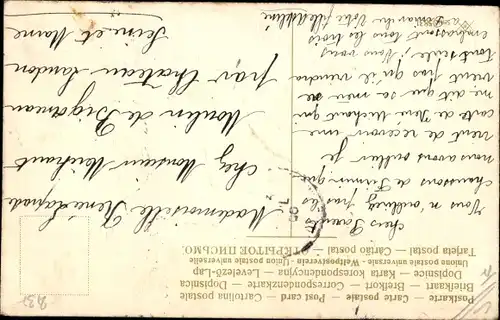 Postkarte — Carte postale — Post card — Cartolina postale
Briefkaart — Brefkort — Correspondenzkarte — Dopisnica
Dopisnice — Karta korespondencyjna — Levelező-Lap
Unione postale universale - Weltpostverein - Union postale universelle
Tarjeta postal — Cartão postal — ОТКРЫТОЕ ПИСЬМО.
Mademoiselle Renée Lapade
chez Monsieur Michaut
Moulin de
par Château Landon
Seine et Marne
Chers Parents
Vous n'oublierez pas les
chaussons de Firmin que
nous avons oublier je
vient de recevoir une
carte de Mme Michaut qui
me dit que sa mère ne
vient pas qu'il viendra
tout seule, Nous vous
embrassont tous les trois
Votre fille